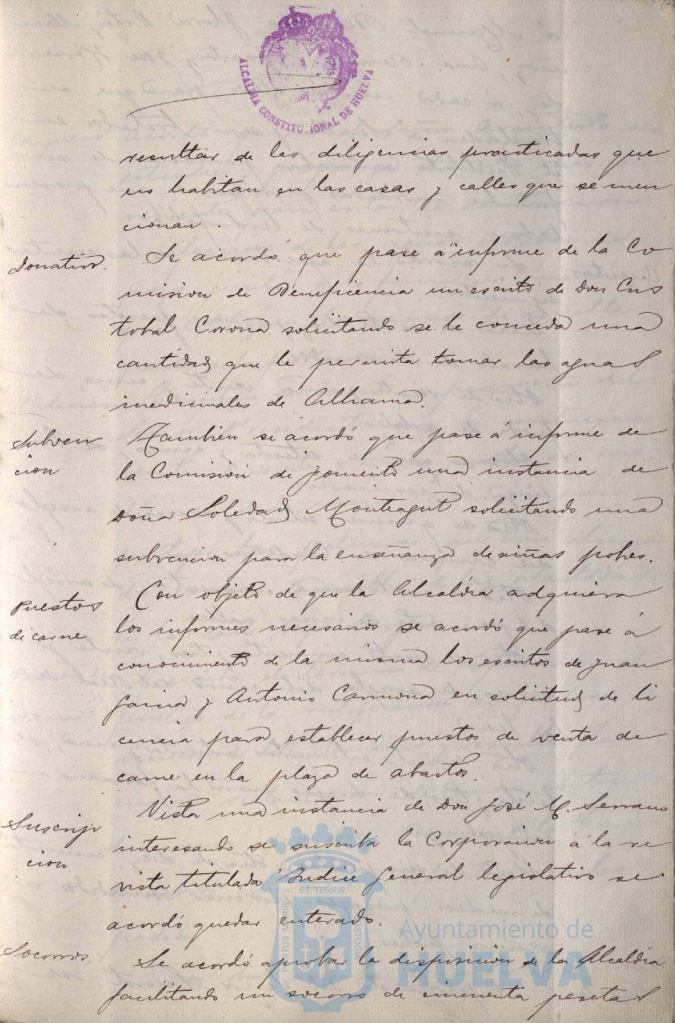 ALCALDIA CONSTITUCIONAL DE HUELVA
resultar de las diligencias practicadas que
no habitan en las casas y calles que se men
cionan.
Donativo. Se acordó que pase á informe de la Co
mision de Beneficencia un escrito de Don Cris
tobal Corona solicitando se le conceda una
cantidad que le permita tomar las aguas
medicinales de Alhama.
Subven
cion
Tambien se acordó que pase á informe de
la Comision de fomento una instancia de
Doña Soledad Montagut solicitando una
subvencion para la enseñanza de niñas pobres.
Puestos
de carne
Con objeto de que la Alcaldia adquiera
los informes necesarios se acordó que pase á
conocimiento de la misma los escritos de Juan
y Antonio Carmona en solicitud de li
cencia para establecer puestos de venta de
carne en la plaza de abastos.
Suscrip
cion
Vista una instancia de Don José M. Serrano
interesando se suscriba la Corporacion á la re
vista titulada Indice general legislativo se
acordó quedar enterado.
Socorros Se acordó aprobar la disposicion de la Alcaldia
facilitando un socorro de cincuenta pesetas
Ayuntamiento de
HUELVA